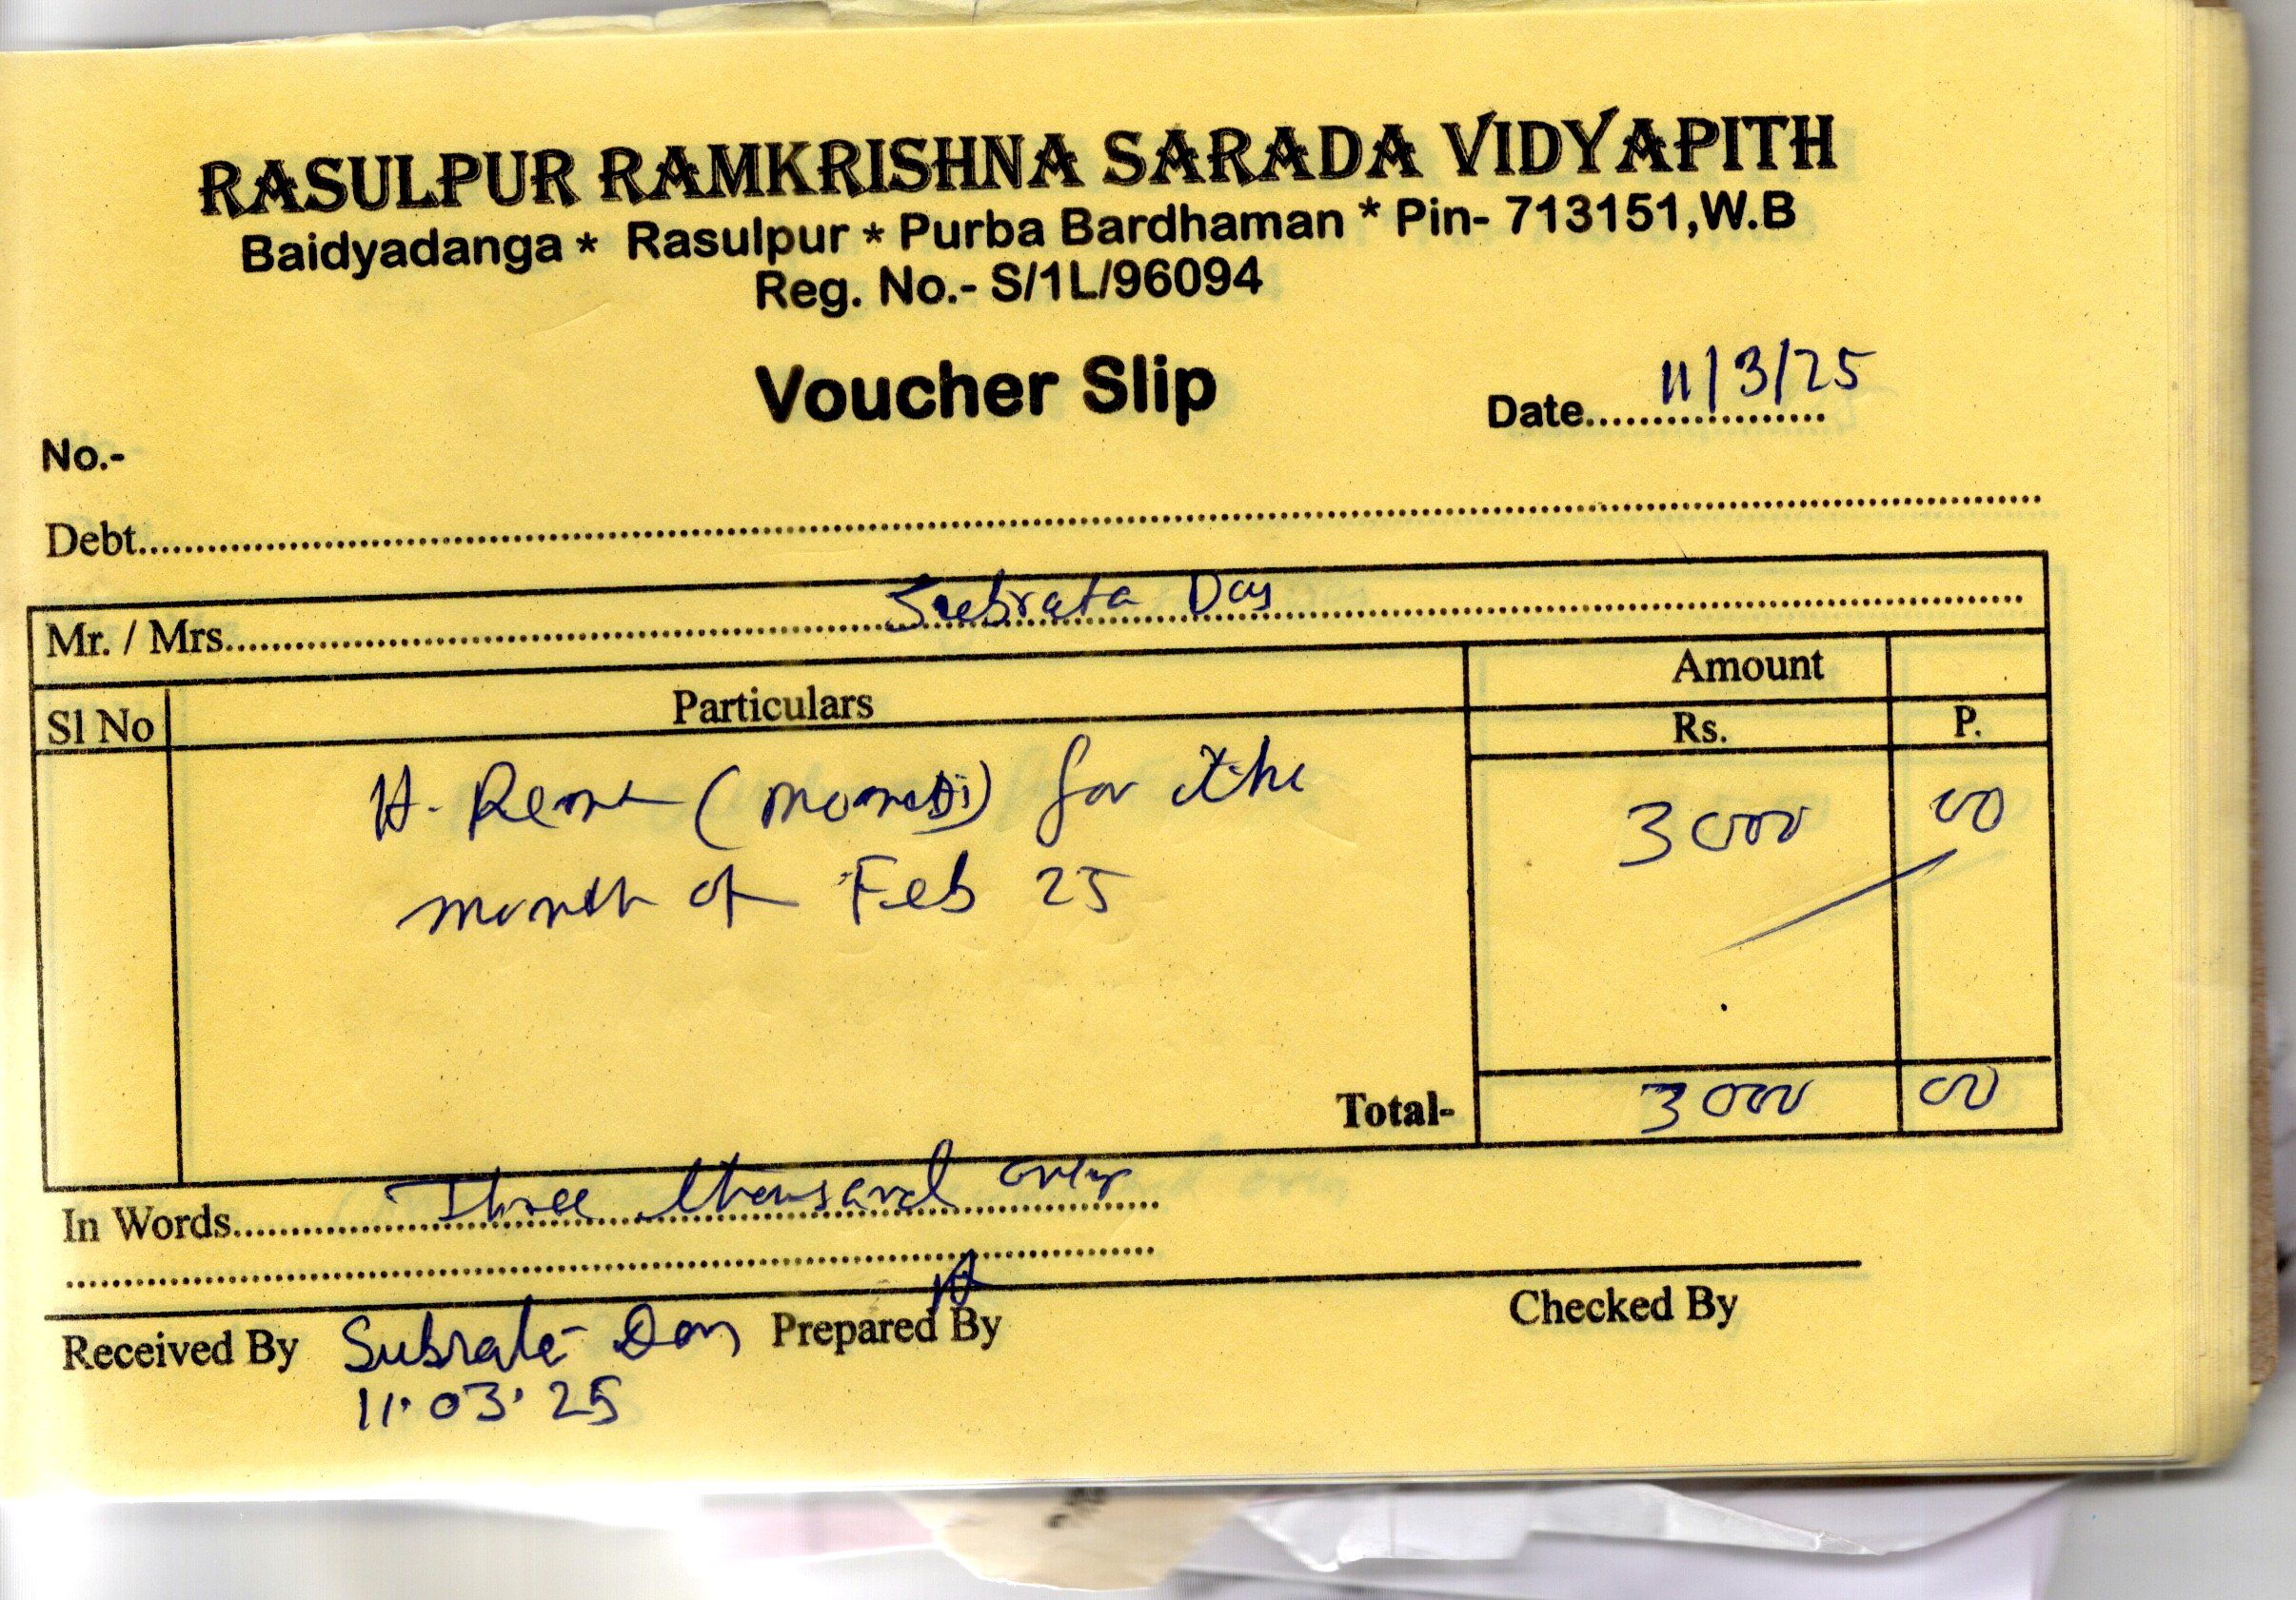 RASULPUR RAMKRISHNA SARADA VIDYAPITH
Baidyadanga * Rasulpur * Purba Bardhaman * Pin- 713151,W.B
Reg. No.- S/1L/96094
Voucher Slip
Date.................. 11/3/25
No.-
Debt..........
Mr. / Mrs.......... Subrata Das
Sl No Particulars Amount
Rs. P.
H. Rent ( ) for the 3000 00
month of Feb 25
Total- 3000 00
In Words.......... Three thousand only
Received By Subrata Das Prepared By Checked By
11.03.25